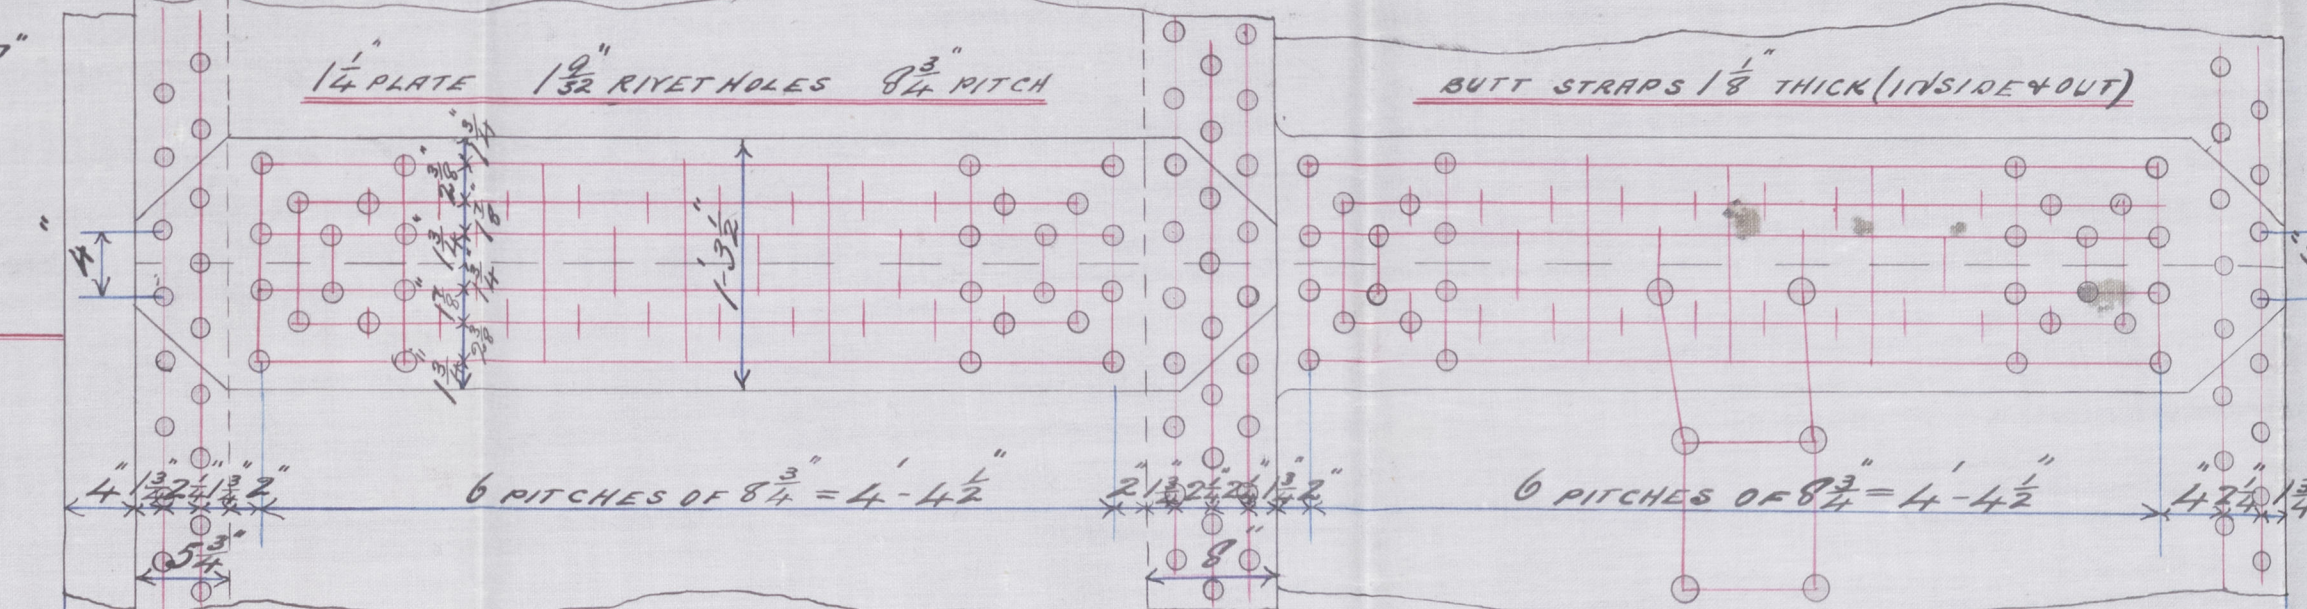 1 1/4" PLATE 1 9/32" RIVET HOLES 8 3/4" PITCH
BUTT STRAPS 1 1/8" THICK (INSIDE & OUT)
1 3/4"
2 3/8"
1 7/8"
1 3/4"
1 3/4"
1 7/8"
2 3/8"
1 3/4"
1'-3 1/2"
4"
4" 1 3/4" 2 1/4" 1 3/4" 2"
6 PITCHES OF 8 3/4" = 4'-4 1/2"
2" 1 3/4" 2 1/4" 2 1/4" 1 3/4" 2"
6 PITCHES OF 8 3/4" = 4'-4 1/2"
4" 2 1/4" 1 3/4
5 3/4"
8"